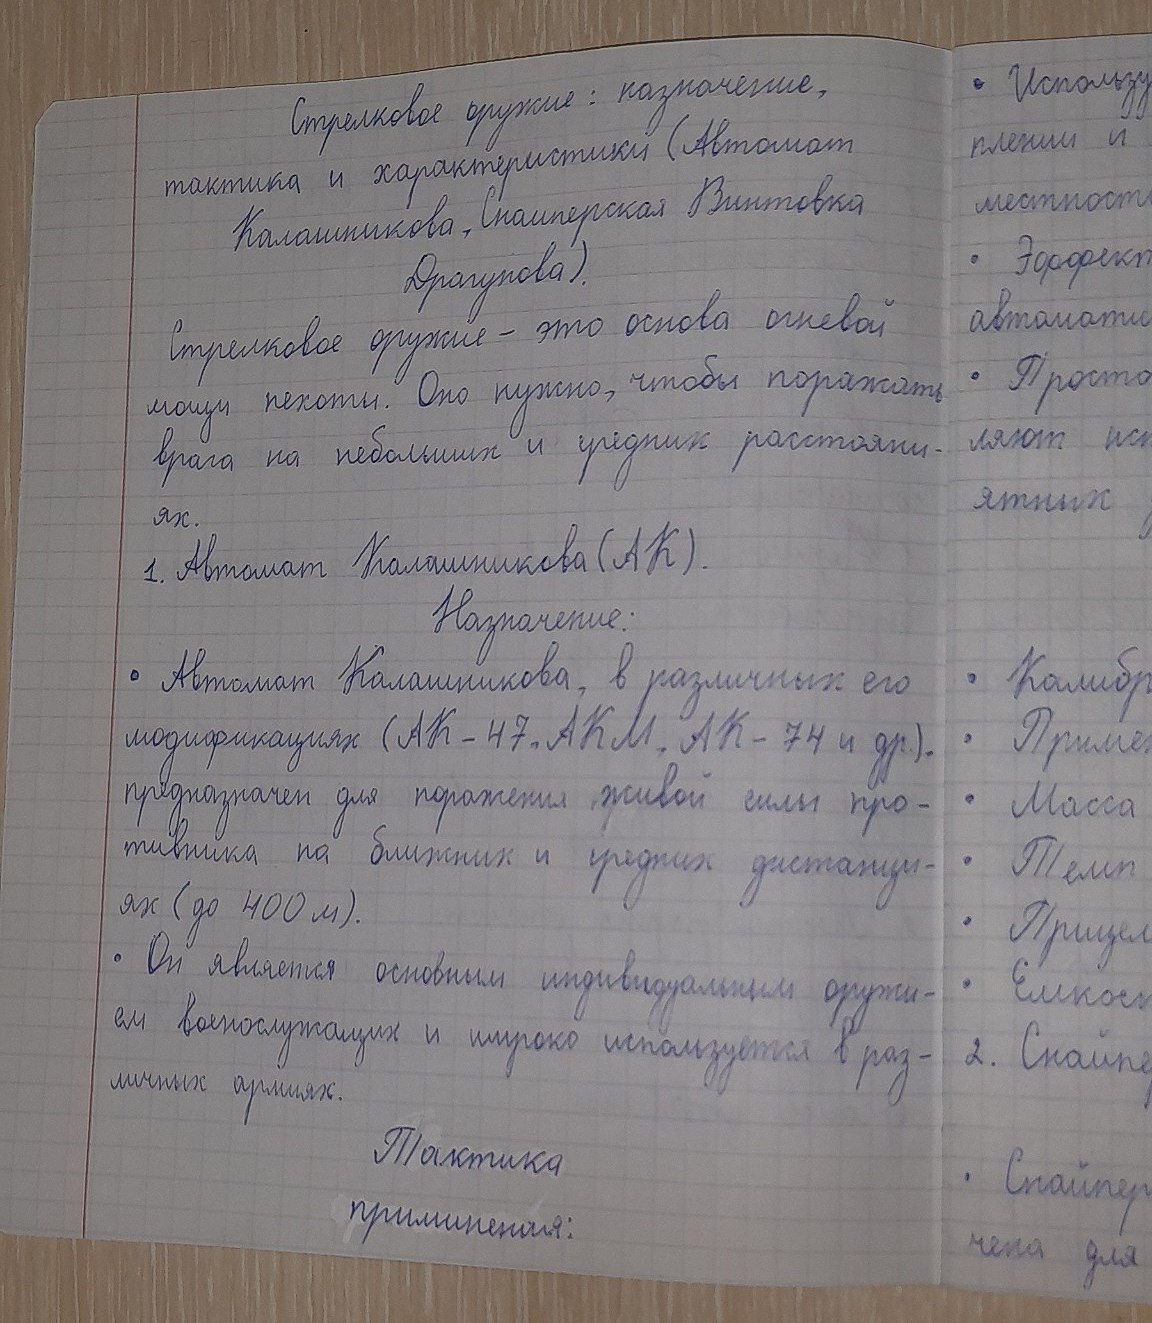 Стрелковое оружие: назначение,
тактика и характеристики (Автомат
Калашникова, Снайперская Винтовка
Драгунова).
Стрелковое оружие - это основа огневой
мощи пехоты. Оно нужно, чтобы поражать
врага на небольших и средних расстояни-
ях.
1. Автомат Калашникова (АК).
Назначение:
• Автомат Калашникова, в различных его
модификациях (АК-47, АКМ, АК-74 и др.),
предназначен для поражения живой силы про-
тивника на ближних и средних дистанци-
ях (до 400 м).
• Он является основным индивидуальным оружи-
ем военослужащих и широко используется в раз-
личных армиях.
Тактика
приминения:
• Использу
плении и
местност
• Эффект
автомати
• Просто
ляют исп
ятных у
• Калибр
• Примен
• Масса
• Темп
• Прицел
• Ёмкост
2. Снайпе
• Снайпер
чена для